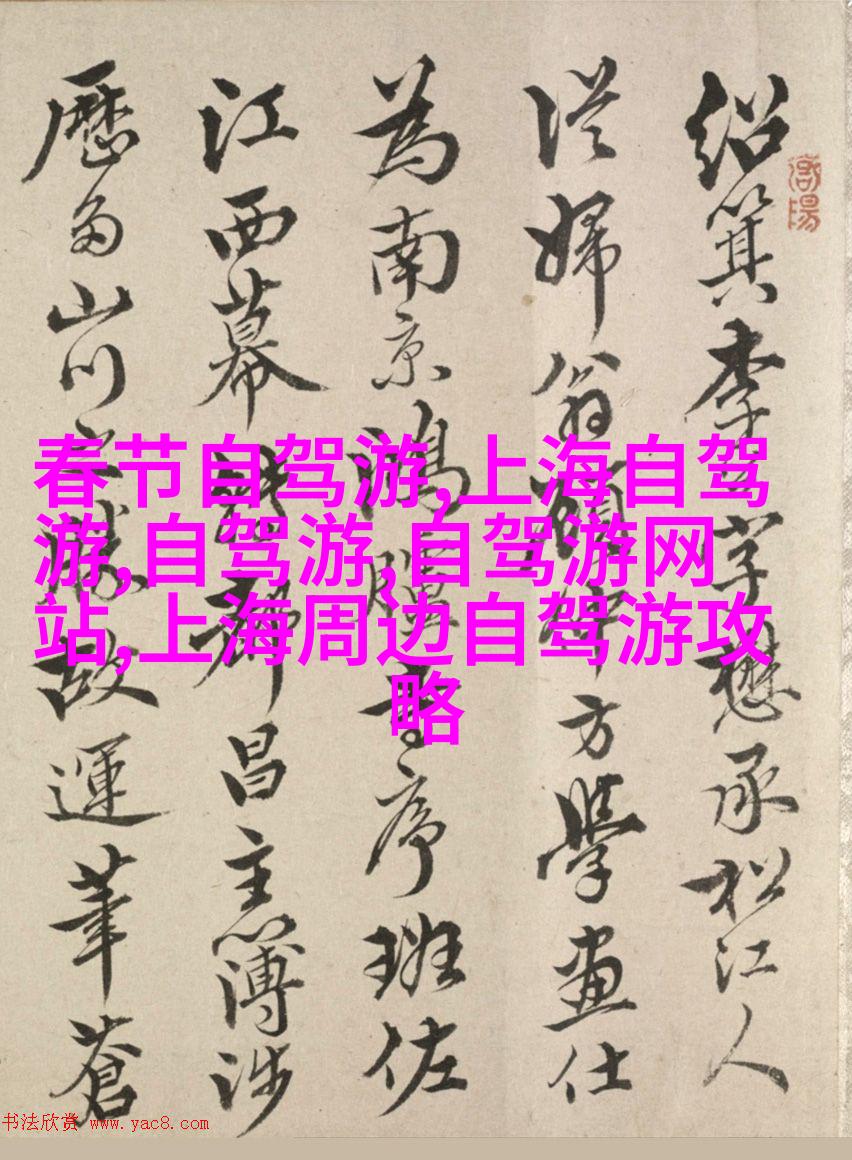 紹箕李字懋承松江人
從婦翁顧仲方學畫仕
為南京鴻臚寺序班佐
江西幕昌主簿涉
歷多山川之勝故運筆蒼
春节自驾游,上海自驾
游,自驾游,自驾游网
站,上海周边自驾游攻
略
书法欣赏 www.yac8.com